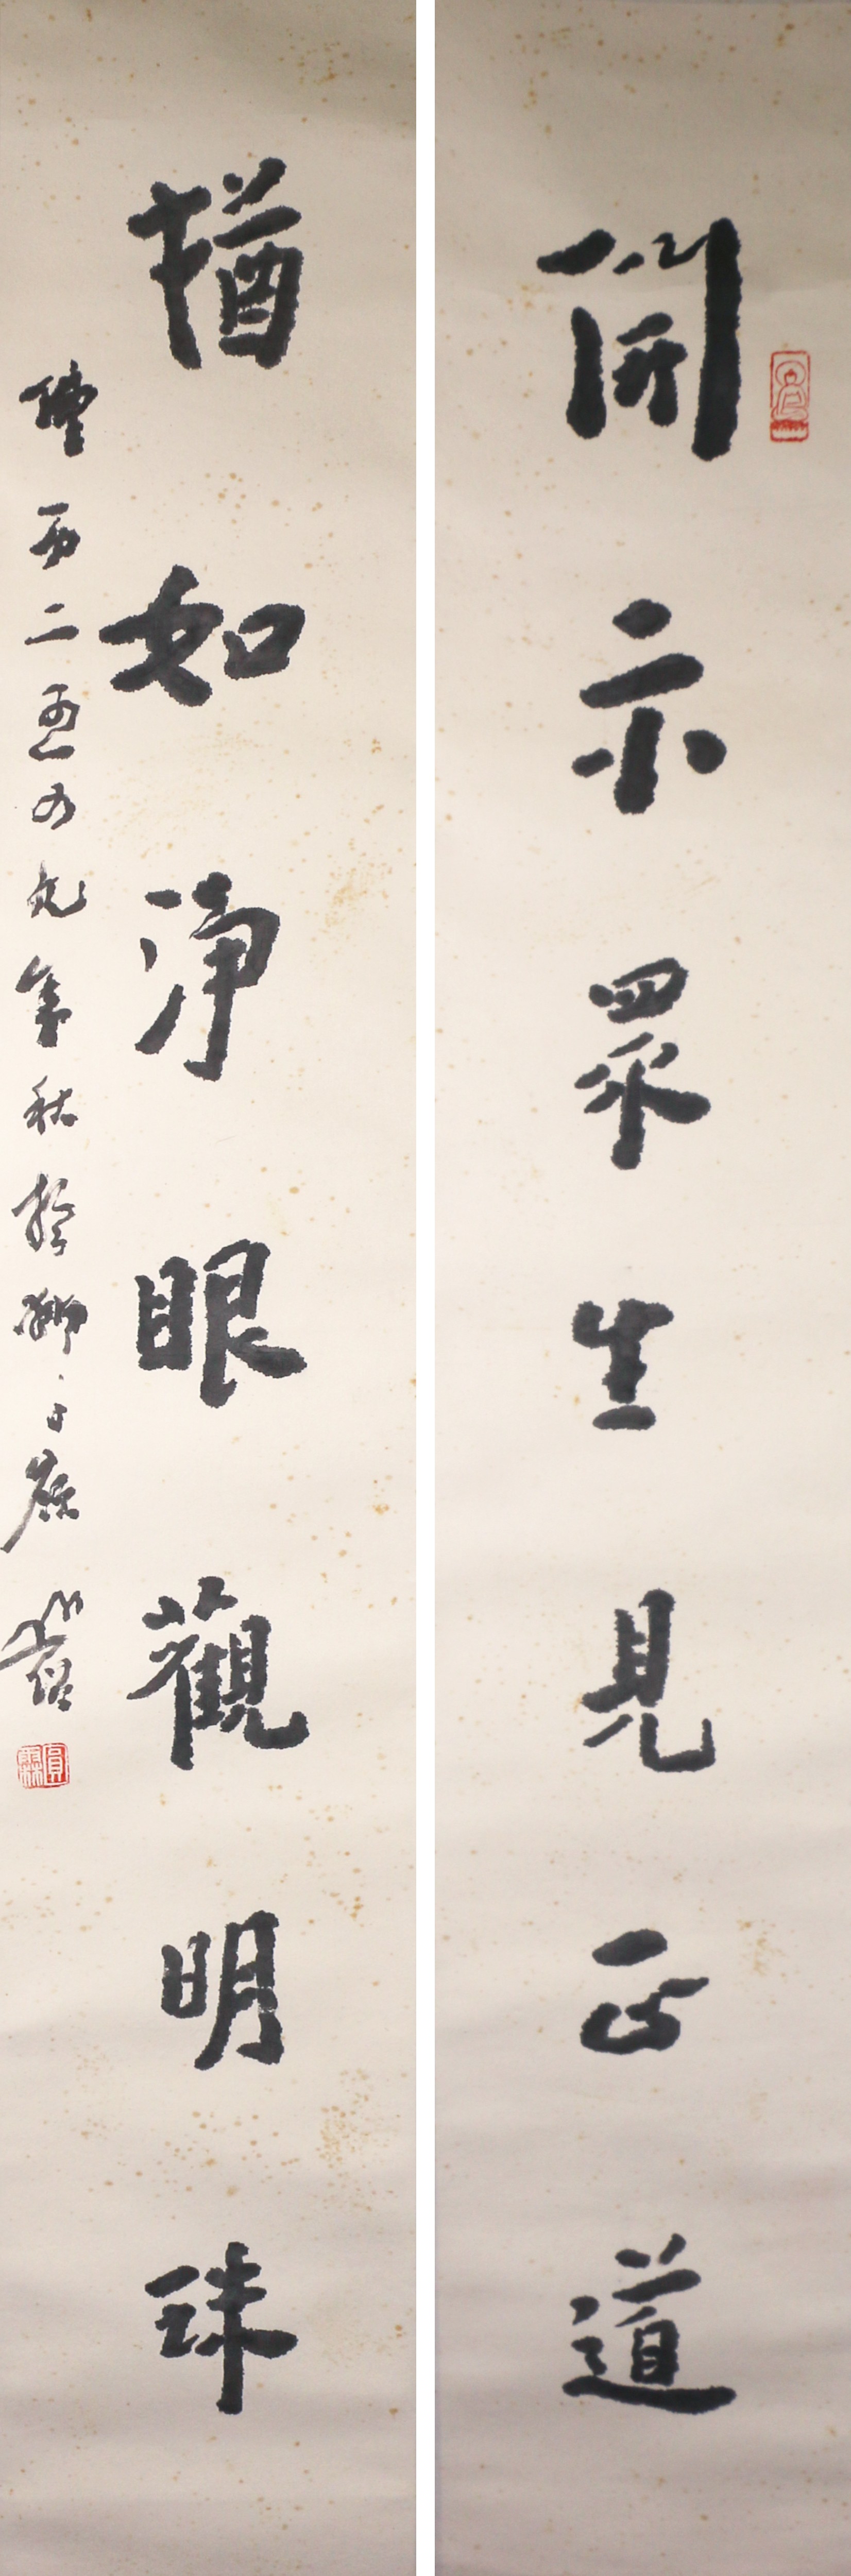 開示眾生見正道
猶如淨眼觀明珠
佛曆二五〇九年秋於獅子庵
圓霖